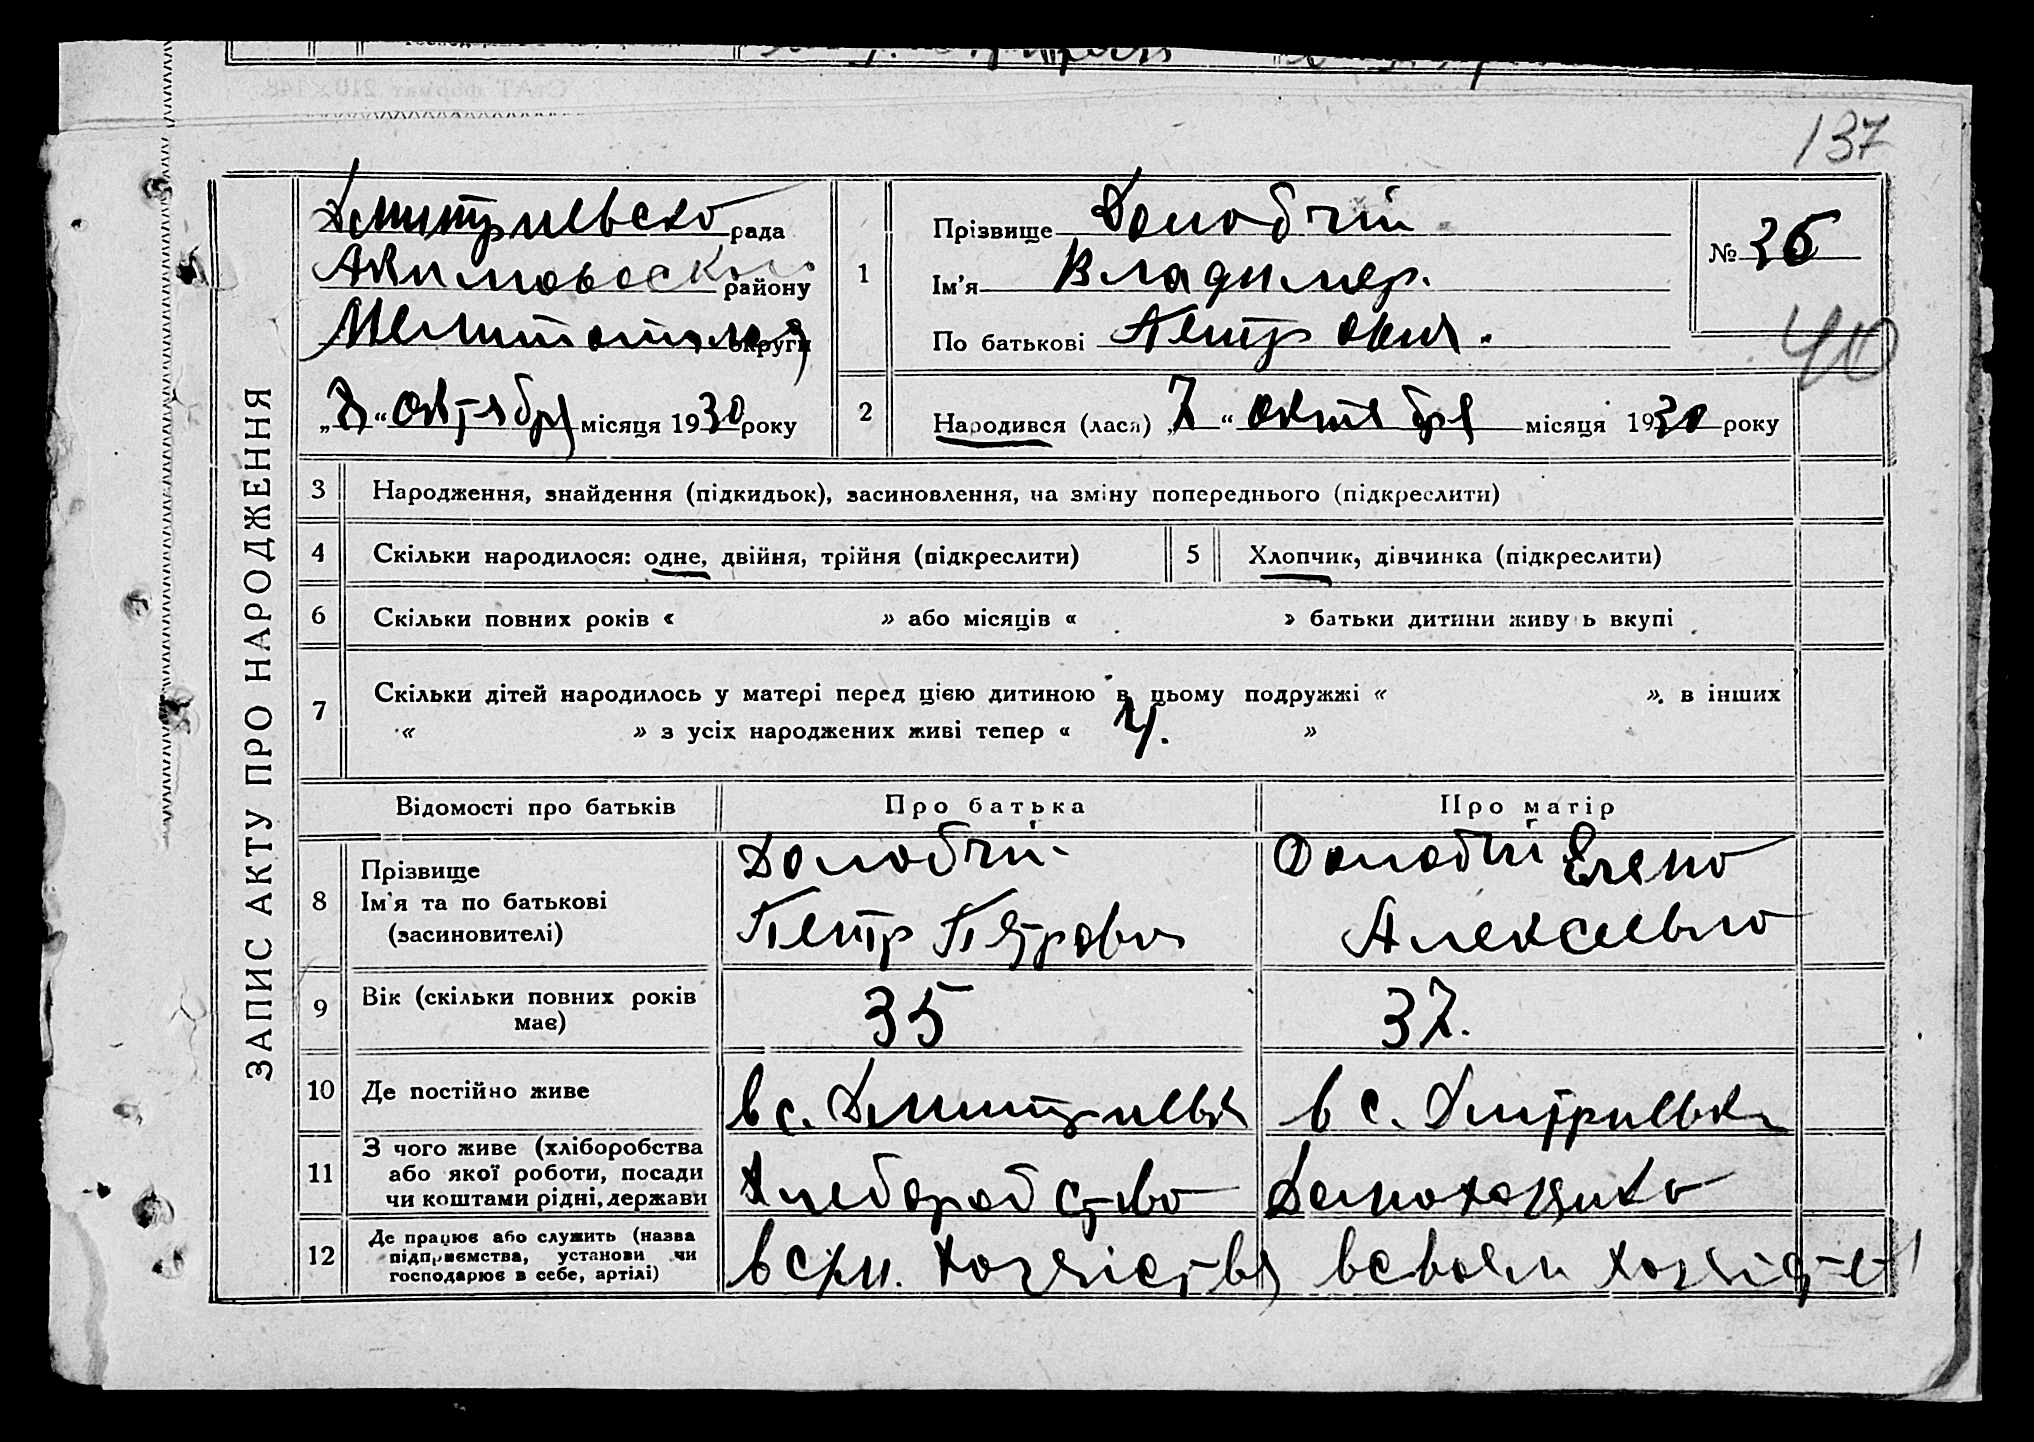 137
Дмитриевско рада
Акимовоского району
Мелитопольск округи
„7“ октября місяця 1930 року
1 Прізвище Долобчій
Ім'я Владимер.
По батькові Петрович.
№ 36
40
2 Народився (лася) „7“ октября місяця 1930 року
ЗАПИС АКТУ ПРО НАРОДЖЕННЯ
3 Народження, знайдення (підкидьок), засиновлення, на зміну попереднього (підкреслити)
4 Скільки народилося: одне, двійня, трійня (підкреслити) 5 Хлопчик, дівчинка (підкреслити)
6 Скільки повних років « » або місяців « » батьки дитини живуть вкупі
7 Скільки дітей народилось у матері перед цією дитиною в цьому подружжі « ». в інших
« » з усіх народжених живі тепер « 4. »
Відомості про батьків Про батька Про матір
8 Прізвище
Ім'я та по батькові
(засиновителі)
Долобчій
Петр Петрович
Долобчій Елено
Алексеевно
9 Вік (скільки повних років
має)
35
37.
10 Де постійно живе
в с. Дмитриевк
в с. Дмитриевк
11 З чого живе (хліборобства
або якої роботи, посади
чи коштами рідні, держави
Хлеборобство
Домохозяйка
12 Де працює або служить (назва
підприємства, установи чи
господарює в себе, артілі)
хозяіств
в своем хозяіст